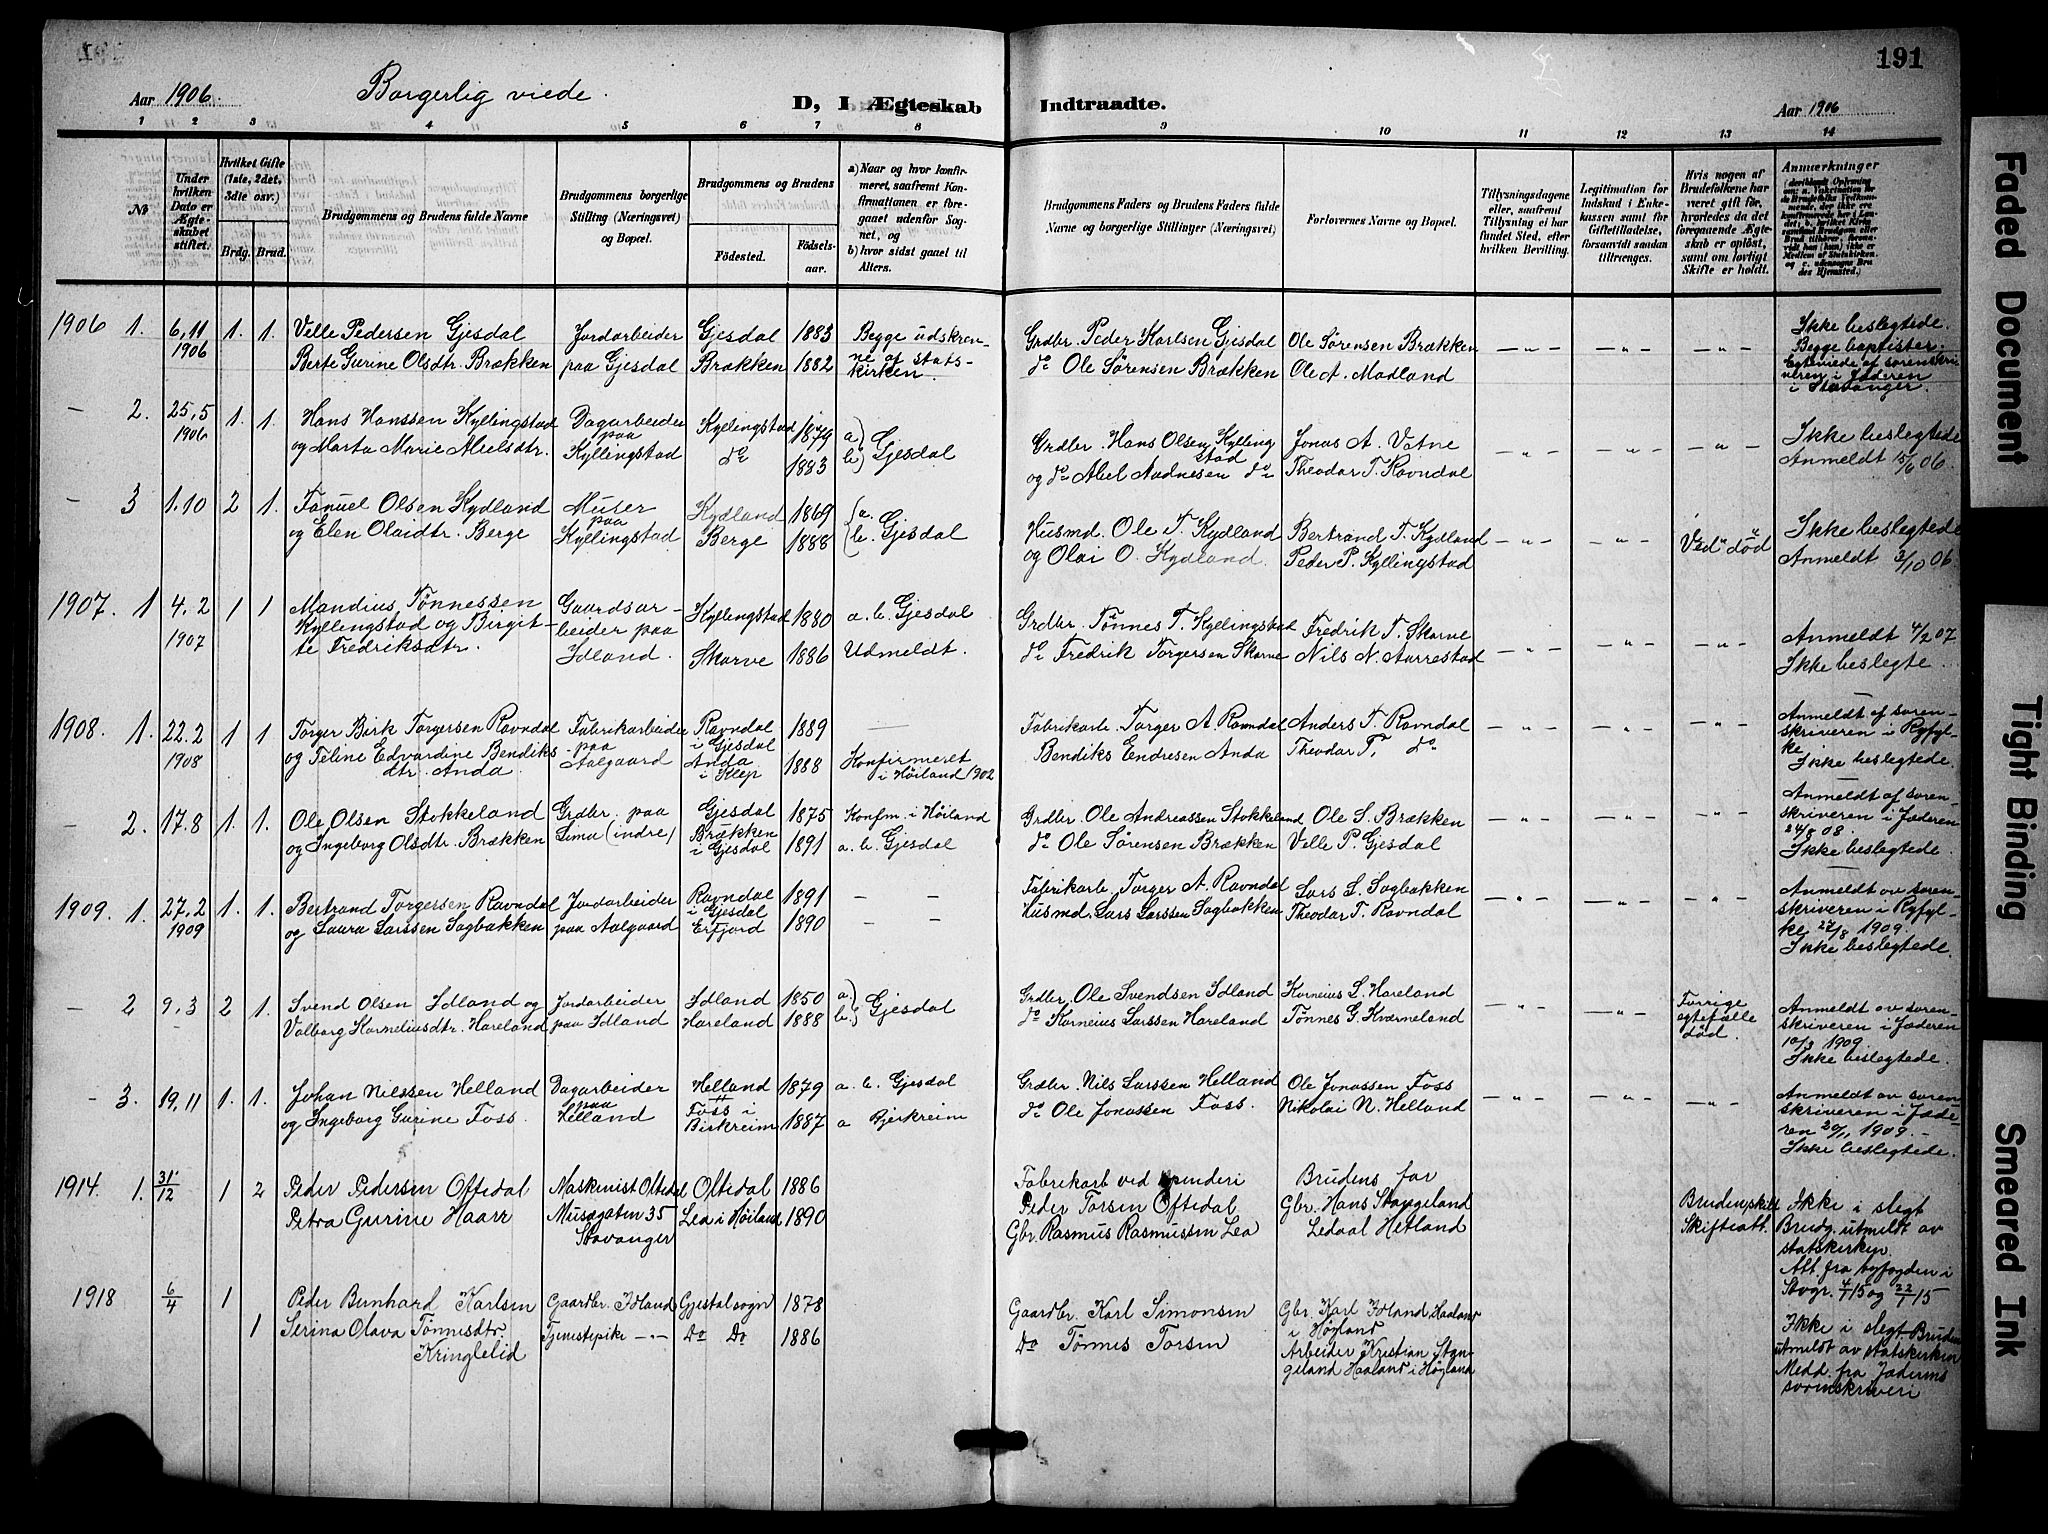 191
Aar 1906. Borgerlig viede. D, I. Ægteskab Indtraadte. Aar 1906
1 2 3 4 5 6 7 8 9 10 11 12 13 14
№
Under hvilken Dato er Ægteskabet stiftet.
Hvilket Gifte (1ste, 2det, 3die osv.)
Brdg. Brud.
Brudgommens og Brudens fulde Navne
Brudgommens borgerlige Stilling (Næringsvei) og Bopæl.
Brudgommens og Brudens
Fødested. Fødselsaar.
a) Naar og hvor konfirmeret, saafremt Konfirmationen er foregaaet udenfor Sognet, og
b) hvor sidst gaaet til Alters.
Brudgommens Faders og Brudens Faders fulde Navne og borgerlige Stillinger (Næringsvei)
Forlovernes Navne og Bopæl.
Tillysningsdagene eller, saafremt Tillysning ei har fundet Sted, efter hvilken Bevilling.
Legitimation for Indskud i Enkekassen samt for Giftetilladelse, forsaavidt saadan tiltrænges.
Hvis nogen af Brudefolkene har været gift før, hvorledes da det foregaaende Ægteskab er opløst, samt om lovligt Skifte er holdt.
Anmærkninger
1906 1. 6,11 1906 1. 1. Velle Pedersen Gjesdal Jordarbeider Gjesdal 1883 Begge udskrevne af statskirken. Grdbr. Peder Karlsen Gjesdal Ole Sørensen Brækken — " — — " — — " — Ikke beslegtede. Begge baptister.
Berte Gurine Olsdtr. Brækken paa Gjesdal Brækken 1882 do Ole Sørensen Brækken Ole A. Madland Egteviede af sorenskriveren i Jæderen i Stavanger.
— 2. 25,5 1906 1. 1. Hans Hanssen Kyllingstad Dagarbeider paa Kyllingstad 1879 a) Gjesdal Grdbr. Hans Olsen Kyllingstad Jonas A. Vatne — " — — " — — " — Ikke beslegtede
og Marta Marie Abelsdtr. Kyllingstad do 1883 b) og do Abel Aadnesen do Theodor T. Ravndal Anmeldt 15/6 06.
— 3 1.10 2 1. Tønnel Olsen Kydland Murer paa Kydland 1869 a. Husmd. Ole T. Kydland Bertrand T. Kydland — " — — " — Ved død Ikke beslegtede
og Elen Olaidtr. Berge Kyllingstad Berge 1888 b. Gjesdal og Olai O. Kydland. Peder P. Kyllingstad Anmeldt 3/10 06
1907. 1 4.2 1907 1 1 Mandius Tønnessen Gaardsar- Kyllingstad 1880 a. b. Gjesdal Grdbr. Tønnes T. Kyllingstad Fredrik T. Skarve — " — — " — — " — Anmeldt 4/2 07.
Kyllingstad og Birgit- beider paa
te Fredriksdtr. Idland. Skarve 1886 Udmeldt. do Fredrik Torgersen Skarve Nils N. Aarrestad Ikke beslegte.
1908. 1. 22.2 1908 1 1 Torger Birk Torgersen Ravndal Fabrikarbeider Ravndal i Gjesdal 1889 — Fabrikarb. Torger A. Ravndal Anders T. Ravndal — " — — " — — " — Anmeldt af sorenskriveren i Ryfylke
og Teline Edvardine Bendiksdtr. Anda paa Aalgaard Anda i Klep 1888 Konfirmeret i Høiland 1902 Bendiks Endresen Anda Theodor T. do Ikke beslegtede.
— 2. 17.8 1. 1. Ole Olsen Stokkeland Grdbr. paa Gjesdal 1875 Konfm. i Høiland Grdbr. Ole Andreassen Stokkeland Ole S. Brækken — " — — " — — " — Anmeldt af sorenskriveren i Jæderen 24/8 08.
og Ingeborg Olsdtr. Brækken Lima (indre) Brækken i Gjesdal 1891 a. b. Gjesdal do Ole Sørensen Brækken Velle P. Gjesdal Ikke beslegtede.
1909. 1. 27.2 1909 1. 1. Bertrand Torgersen Ravndal Jordarbeider Ravndal i Gjesdal 1891 — — Fabrikarb. Torger A. Ravndal Lars L. Sagbakken — " — — " — — " — Anmeldt ov sorenskriveren i Ryfylke 27/8 1909.
og Laura Larssen Sagbakken paa Aalgaard Erfjord 1890 — — Husmd. Lars Larssen Sagbakken Theodor T. Ravndal Ikke beslegtede.
— 2 9,3 2 1. Svend Olsen Idland og Jordarbeider Idland 1850 a.) Grdbr. Ole Svendsen Idland Korneius L. Hareland — " — — " — Forrige egtefælle død. Anmeldt ov sorenskriveren i Jæderen 10/3 1909.
Valborg Korneliusdtr. Hareland paa Idland Hareland 1888 b.) Gjesdal do Korneius Larssen Hareland Tønnes G. Kværneland Ikke beslegtede.
— 3. 19,11 1. 1. Johan Nilssen Helland Dagarbeider paa Helland 1879 a. b. Gjesdal Grdbr. Nils Larssen Helland Ole Jonassen Foss — " — — " — — " — Anmeldt av sorenskriveren i Jæderen 20/11 1909.
og Ingeborg Gurine Foss. Helland Foss i Birkreim 1887 a Bjerkreim do Ole Jonassen Foss. Nikolai N. Helland Ikke beslegtede.
1914. 1. 31/12 1 2 Peder Pedersen Oftedal Maskinist Oltedal Oltedal 1886 Fabrikarb ved spinderi Brudens far Brudens skilt Ikke i slegt
Petra Gurine Haarr Musegaten 35 Lea i Høiland 1890 Peder Torsen Oftedal Gbr. Hans Stangeland Skifteatt. Brudg. utmeldt av
Stavanger Gbr. Rasmus Rasmussen Lea Ledaal Hetland statskirken.
Att. fra byfogden i
Stvgr. 4/1 15 og 22/1 15
1918 6/4 1 Peder Bernhard Karlsen Gaardbr. Idland Gjestal sogn 1878 Gaardbr. Karl Simonsen Gbr. Karl Idland Haaland i Høgland Ikke i slegt. Bruden
1 Serina Olava Tønnesdtr. Kringlelid Tjenestepike — " — Do Do 1886 Do Tønnes Torsen Arbeider Kristian Stangeland Haaland i Høgland utmeldt av statskirken
Medd. fra Jæderens
sorenskriveri
Faded Document
Tight Binding
Smeared Ink